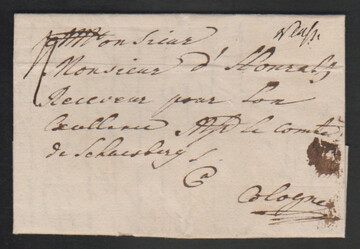 Neuss
Monsieur
Monsieur d'
Receveur pour Son
Excellence Mgr le Comte
de Schaesberg
a
Cologne